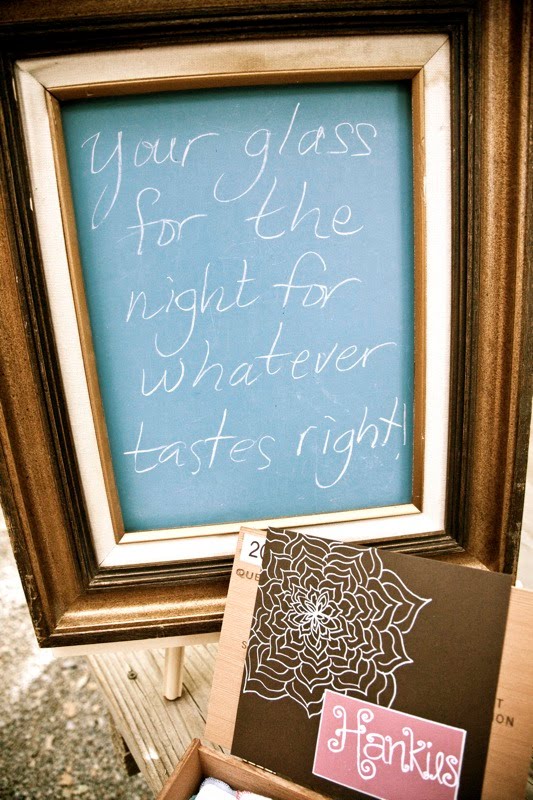 your glass
for the
night for
whatever
tastes right!
20
QUE
Hankies
T
ION